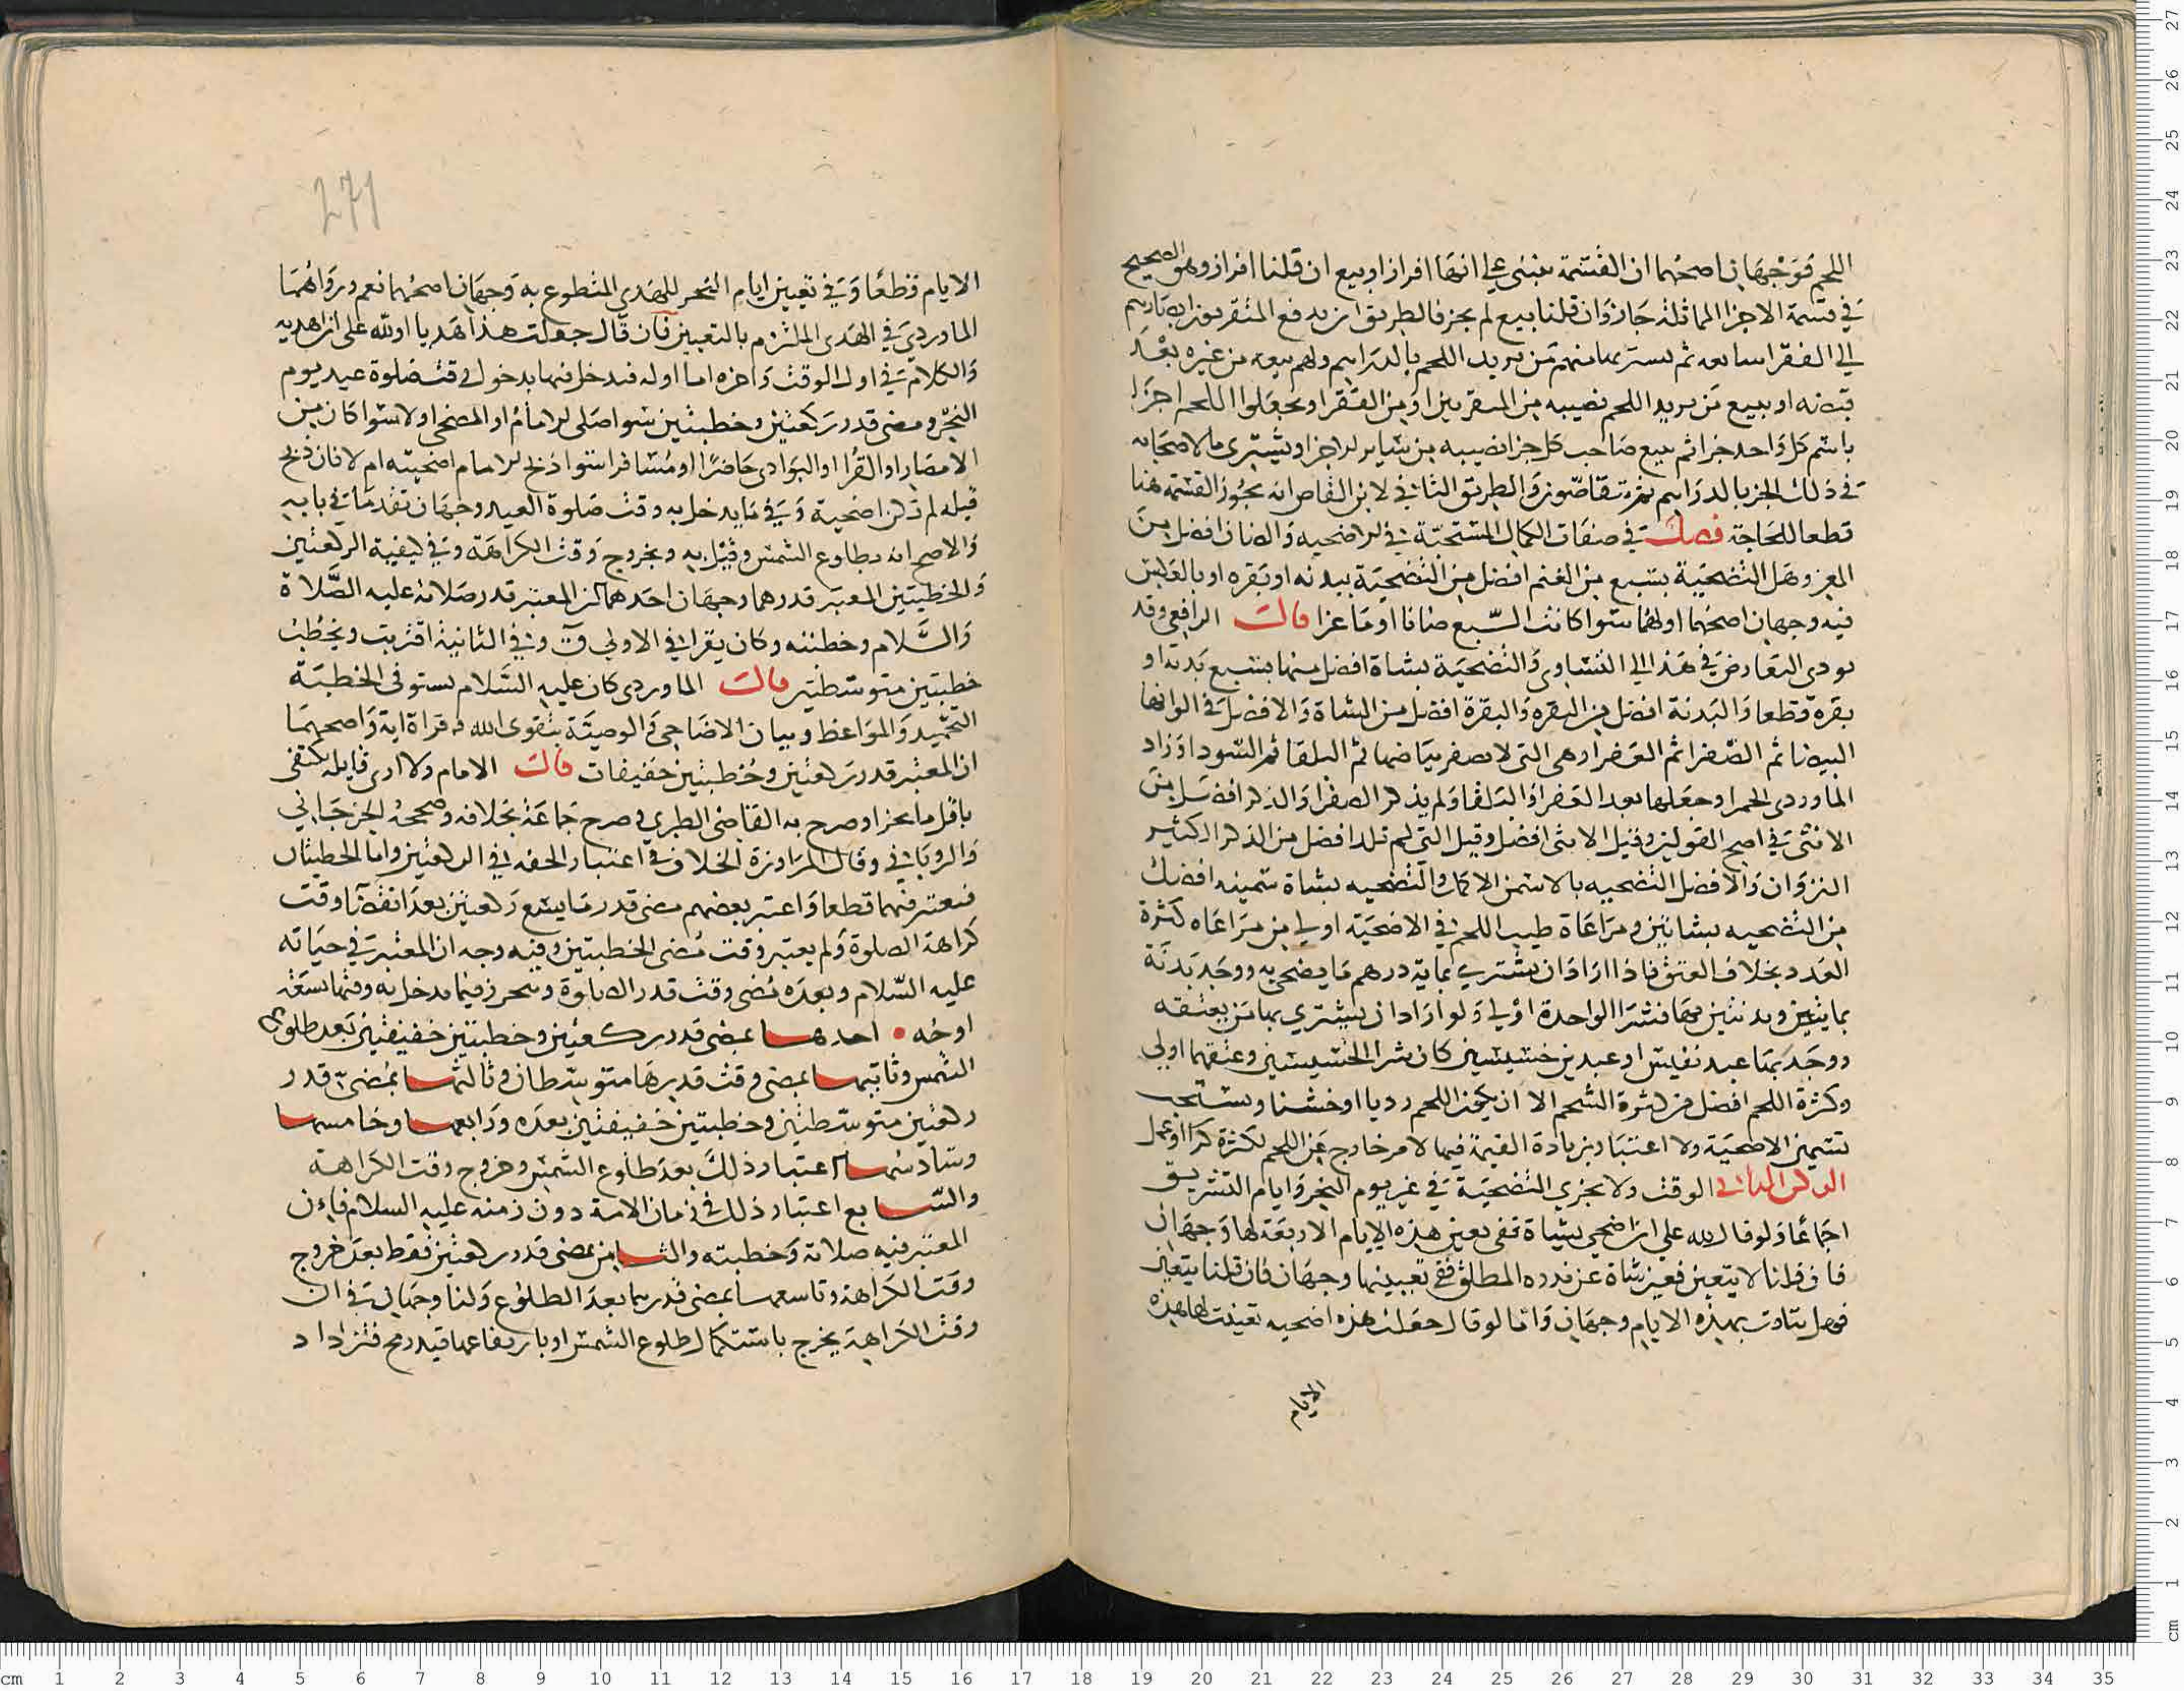 اللحم فوجهان اصحهما ان القسمة تنبني على انها افراز او بيع ان قلنا افراز وهو الصحيح
في قسمة الاجزا المماثلة جاز وان قلنا بيع لم يجز فالطريق ان يدفع المتقربون
الى الفقرا ثم يشتريها منهم من يريد اللحم بالدراهم ولهم بيعه من غيره بعد
او يبيع من يريد اللحم نصيبه من المتقربين او من الفقرا او يجعلوا اللحم اجزا
باسم كل واحد جزا ثم يبيع صاحب كل جزا نصيبه من ساير الاجزا ويشتري ما لاصحابه
في ذلك الجز بالدراهم ثم يتقاصون والطريق الثاني لابن القاص انه يجوز القسمة هنا
قطعا للحاجة فصل في صفات الكمال المستحبة في الاضحيه والضان افضل من
المعز وهل التضحية بسبع من الغنم افضل من التضحية ببدنه او بقره او بالعكس
فيه وجهان اصحهما اولهما سوا كانت السبع ضانا او ماعزا قالت الرافعي وقد
يودي التعارض في هذا الى التساوي والتضحية بشاة افضل منها بسبع بدنة او
بقرة قطعا والبدنة افضل من البقره والبقرة افضل من الشاة والافضل في الوانها
البيضا ثم الصفرا ثم العفرا وهي التي لا يصفو بياضها ثم البلقا ثم السودا وزاد
الماوردي الحمرا وجعلها بعد العفرا والبلقا ولم يذكر الصفرا والذكر افضل من
الانثى في اصح القولين وقيل الانثى افضل وقيل التي لم تلد افضل من الذكر الكثير
النزوان والافضل التضحيه بالاسمن الاكمل والتضحيه بشاة سمينه افضل
من التضحيه بشاتين ومراعاة طيب اللحم في الاضحية اولى من مراعاه كثرة
العدد بخلاف العتق فاذا اراد ان يشتري بماية درهم ما يضحي به ووجد بدنة
بمايتين وبدنتين بها فشرا الواحدة اولى ولو اراد ان يشتري بها من يعتقه
ووجد بها عبد نفيس او عبدين خسيسين كان شرا الخسيسين وعتقهما اولى
وكثرة اللحم افضل من كثرة الشحم الا ان يكون اللحم رديا او خشنا ويستحب
تسمين الاضحية ولا اعتبار بزيادة القيمة فيها لامر خارج عن اللحم لكثرة كرا او عمل
الركن الثاني الوقت ولا يجزي التضحية في غير يوم النحر وايام التشريق
اجماعا ولو قال لله علي ان اضحي بشاة ففي تعين هذه الايام الاربعة لها وجهان
فان قلنا لا يتعين فعين شاة عن نذره المطلق ففي تعيينها وجهان فان قلنا يتعين
فهل يتادى بهذه الايام وجهان واما لو قال جعلت هذه اضحيه تعينت لها هذه
الايام
271
الايام قطعا وفي تعيين ايام النحر للهدي المتطوع به وجهان اصحهما نعم ورواهما
الماوردي في الهدى الملتزم بالتعيين فان قال جعلت هذا هديا او لله على ان اهديه
والكلام في اول الوقت واخره اما اوله فيدخل فيها بدخول وقت صلوة عيد يوم
النحر ومضى قدر ركعتين وخطبتين سوا صلى الامام او المضحي اولا سوا كان من
الامصار او القرا او البوادى حاضرا او مسافرا سوا ذبح الامام اضحيته ام لا فان ذبح
قبله لم تكن اضحية وفي ما يدخل به وقت صلوة العيد وجهان تقدما في بابه
والاصح انه بطلوع الشمس وقيل به وبخروج وقت الكراهة وفي كيفية الركعتين
والخطبتين المعتبر قدرهما وجهان احدهما ان المعتبر قدر صلاته عليه الصلاة
والسلام وخطبته وكان يقرا في الاولى ق وفي الثانية اقتربت ويخطب
خطبتين متوسطتين قالت الماوردى كان عليه السلام يستوفى الخطبة
التحميد والمواعظ وبيان الاضاحي والوصية بتقوى الله وقراة اية واصحهما
ان المعتبر قدر ركعتين وخطبتين خفيفات قالت الامام ولا ارى قايله يكتفى
باقل ما يجزا وصرح به القاضى الطبري وصرح جماعة بخلافه وصححه الجرجاني
والروياني وقال المراوزة الخلاف في اعتبار الخفه في الركعتين واما الخطبتان
فيعتبر فيهما قطعا واعتبر بعضهم مضى قدر ما يسع ركعتين بعد انقضا وقت
كراهة الصلوة ولم يعتبر وقت مضى الخطبتين وفيه وجه ان المعتبر في حياته
عليه السلام وبعده مضى وقت قدر الصلوة وتحرر فيما يدخل به وقتها تسعة
اوجه • احدهسا بمضى قدر ركعتين وخطبتين خفيفتين بعد طلوع
الشمس وثانيها بمضى وقت قدرها متوسطان وثالثها بمضى قدر
ركعتين متوسطتين وخطبتين خفيفتين بعده ورابعها وخامسها
وسادسها اعتبار ذلك بعد طلوع الشمس وخروج وقت الكراهة
والسابع اعتبار ذلك في زمان الامة دون زمنه عليه السلام فان
المعتبر فيه صلاته وخطبته والثامن بمضى قدر ركعتين فقط بعد خروج
وقت الكراهة وتاسعها بمضى قدرهما بعد الطلوع ولنا وجهان في ان
وقت الكراهة يخرج باستكمال طلوع الشمس او بارتفاعها قيد رمح فتزداد